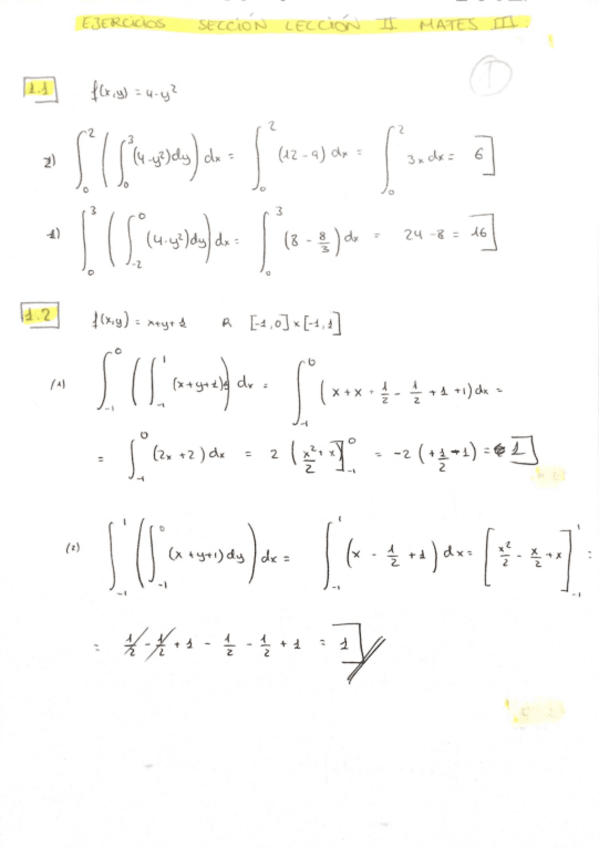 EJERCICIOS SECCIÓN LECCIÓN II MATES III.
1
1.1 f(x,y) = 4-y²
2) ∫₀² (∫₀³ (4-y²)dy) dx = ∫₀² (12-9) dx = ∫₀² 3x dx = 6
1) ∫₀³ (∫₋₂⁰ (4-y²)dy) dx = ∫₀³ (8 - 8/3) dx = 24 - 8 = 16
1.2 f(x,y) = x+y+1 R [-1,0]×[-1,1]
(1) ∫₋₁⁰ (∫₋₁¹ (x+y+1)) dx = ∫₋₁⁰ (x+x+1/2 - 1/2 +1+1) dx =
= ∫₋₁⁰ (2x+2) dx = 2 (x²/2 + x)]₋₁⁰ = -2 (+1/2 -1) = 1
(2) ∫₋₁¹ (∫₋₁⁰ (x+y+1) dy) dx = ∫₋₁¹ (x - 1/2 + 1) dx = [x²/2 - x/2 + x]₋₁¹ =
= 1/2 - 1/2 + 1 - 1/2 - 1/2 + 1 = 1